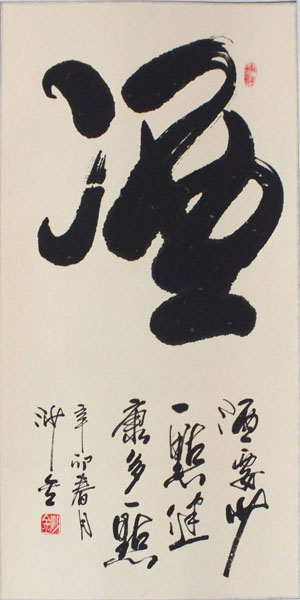 酒
酒要少
一點健
康多一點
辛卯春月